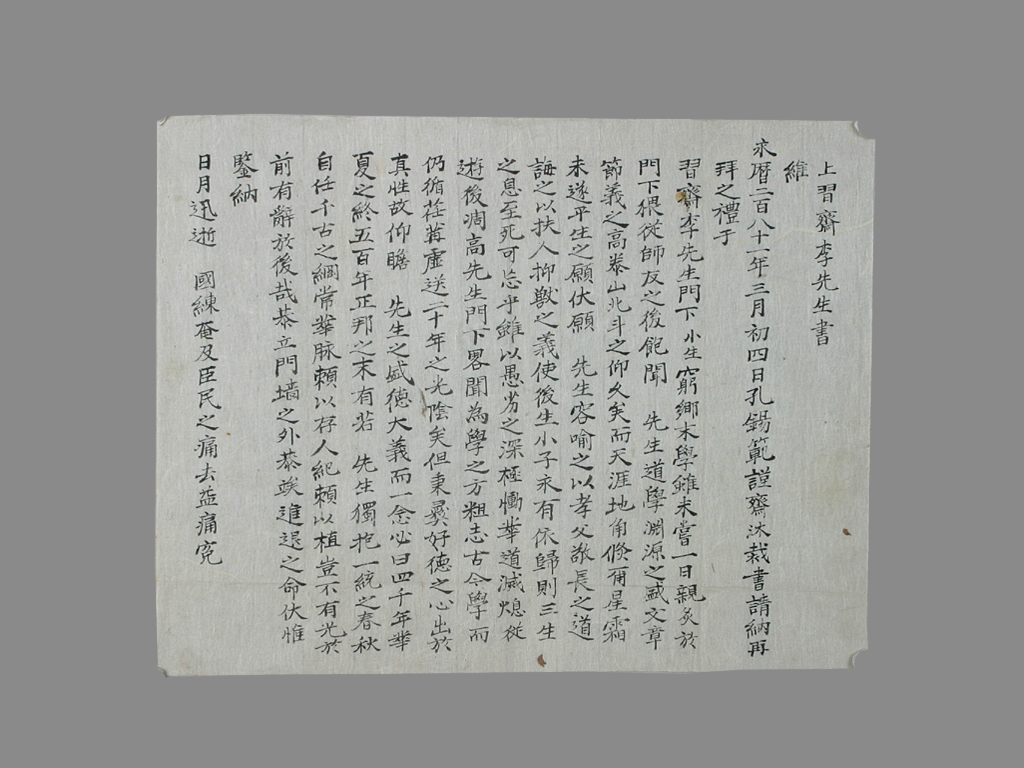 上習齋李先生書
維
永曆二百八十一年三月初四日孔錫範謹齋沐裁書請納再
拜之禮于
習齋李先生門下小生窮鄉末學雖未嘗一日親炙於
門下猥從師友之後飽聞 先生道學淵源之盛文章
節義之高泰山北斗之仰久矣而天涯地角倏爾星霜
未遂平生之願伏願 先生容喻之以孝父敬長之道
誨之以扶人抑獸之義使後生小子永有依歸則三生
之息至死可忘乎雖以愚劣之深極慟華道滅熄從
遊後凋高先生門下畧聞為學之方粗志古今學而
仍循荏苒虛送二十年之光陰矣但秉彛好德之心出於
真性故仰瞻 先生之盛德大義而一念必曰四千年華
夏之終五百年正邦之末有若 先生獨抱一統之春秋
自任千古之綱常華脉賴以存人紀賴以植豈不有光於
前有辭於後哉恭立門墻之外恭竢進退之命伏惟
鑒納
日月迅逝 國練奄及臣民之痛去益痛寃